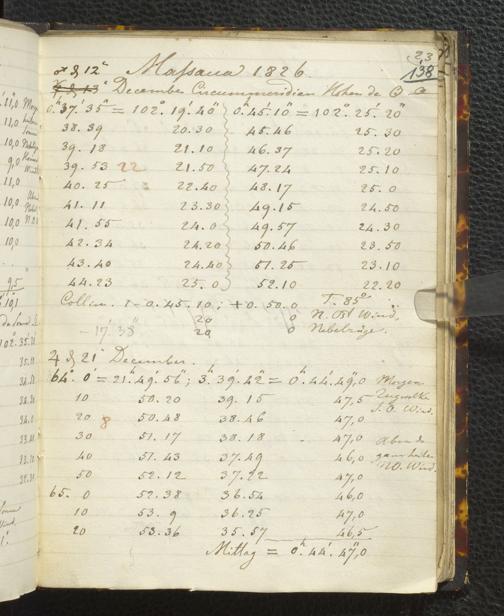 23
138
♂ d 12ᵗ Massaua 1826.
December Circummeridian Höhen der ☉
0ʰ 37′ 35″ = 102° 19′ 40″ 0ʰ 45′ 10″ = 102° 25′ 20″
38.39 20.30 45.46 25.30
39.18 21.10 46.37 25.20
39.53 22 21.50 47.24 25.10
40.25 22.40 48.17 25.0
41.11 23.30 49.15 24.50
41.55 24.0 49.57 24.30
42.34 24.20 50.46 23.50
43.40 24.40 51.25 23.10
44.23 25.0 52.10 22.20
Collim. - 0.45.10; + 0.50.0 T. 85°
20 0 N. Ost Wind,
- 17′ 38″ 20 0 Nebelzüge.
♃ d 21 December.
64° 0′ = 21ʰ 49′ 56″; 3ʰ 39′ 42″ = 0ʰ 44′ 49,0 Morgen
10 50.20 39.15 47,5
20 8 50.48 38.46 47,0 S.O. Wind.
30 51.17 38.18 47,0 Abends
40 51.43 37.49 46,0 ganz heiter
50 52.12 37.22 47,0 NO. Wind.
65. 0 52.38 36.54 46,0
10 53.9 36.25 47,0
20 53.36 35.57 46,5
Mittag = 0ʰ 44′ 47,0